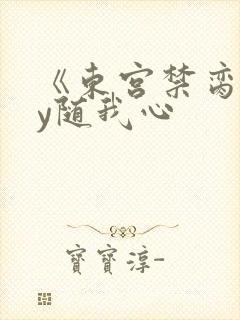 《東宮禁臠
y隨我心
寶寶淳-